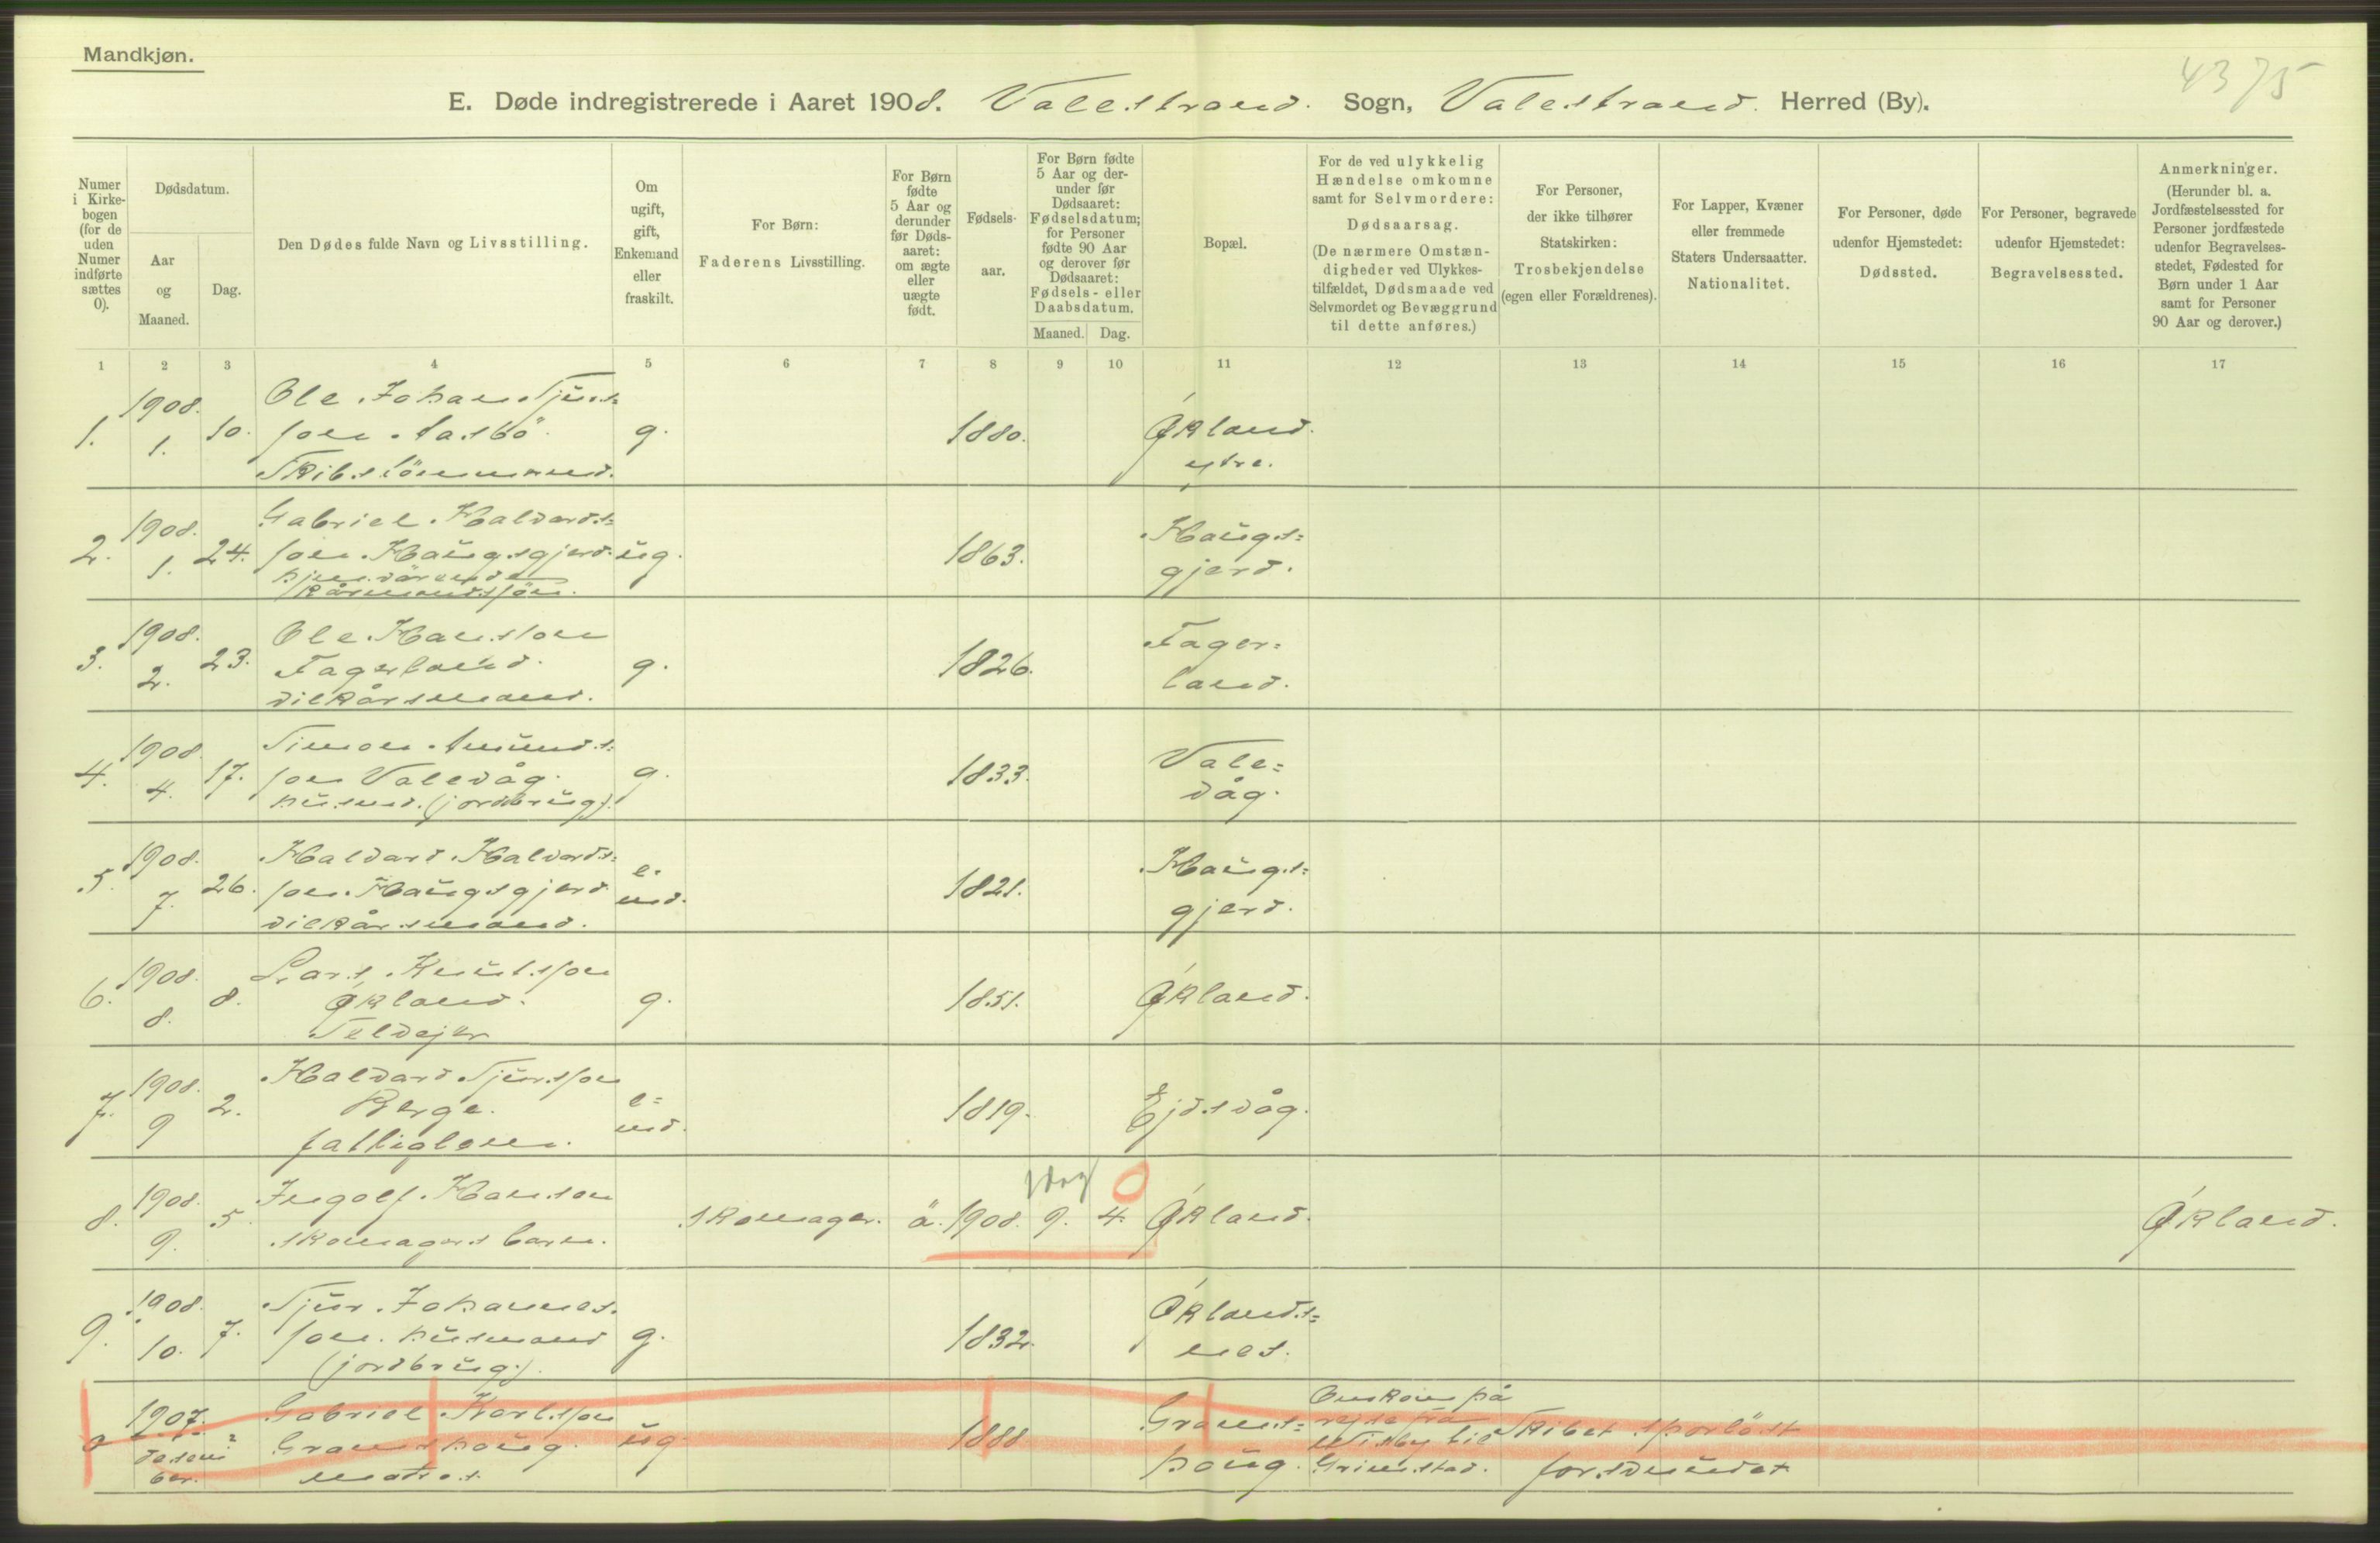 Mandkjøn.
4375
E. Døde indregistrerede i Aaret 1908. Valestrand. Sogn, Valestrand. Herred (By).
Numer
i Kirke-
bogen
(for de
uden
Numer
indførte
sættes
0).
Dødsdatum.
Aar
og
Maaned.
Dag.
Den Dødes fulde Navn og Livsstilling.
Om
ugift,
gift,
Enkemand
eller
fraskilt.
For Børn:
Faderens Livsstilling.
For Børn
fødte
5 Aar og
derunder
før Døds-
aaret:
om ægte
eller
uægte
født.
Fødsels-
aar.
For Børn fødte
5 Aar og der-
under før
Dødsaaret:
Fødselsdatum;
for Personer
fødte 90 Aar
og derover før
Dødsaaret:
Fødsels- eller
Daabsdatum.
Maaned. Dag.
Bopæl.
For de ved ulykkelig
Hændelse omkomne
samt for Selvmordere:
Dødsaarsag.
(De nærmere Omstæn-
digheder ved Ulykkes-
tilfældet, Dødsmaade ved
Selvmordet og Bevæggrund
til dette anføres.)
For Personer,
der ikke tilhører
Statskirken:
Trosbekjendelse
(egen eller Forældrenes).
For Lapper, Kvæner
eller fremmede
Staters Undersaatter.
Nationalitet.
For Personer, døde
udenfor Hjemstedet:
Dødssted.
For Personer, begravede
udenfor Hjemstedet:
Begravelsessted.
Anmerkninger.
(Herunder bl. a.
Jordfæstelsessted for
Personer jordfæstede
udenfor Begravelses-
stedet, Fødested for
Børn under 1 Aar
samt for Personer
90 Aar og derover.)
1 2 3 4 5 6 7 8 9 10 11 12 13 14 15 16 17
1908. Ole Johan Tjürs=
1. 1. 10. son g. 1880. Økland.
Skibstömmermand. ystre.
1908. Gabriel Haldords= Haugs=
2. 1. 24. son Haugsgjerd. ug. 1863. gjerd.
1908. Ole Hansson Fager=
3. 2. 23. Fagerland. g. 1826. land.
vilkårsmand.
1908. Simon Amunds= Vale=
4. 4. 17. son Valevåg. g. 1833. våg.
husmd. (jordbrug).
1908. Haldord Haldords= e. Haugs=
5. 7. 26. son Haugsgjerd md. 1821. gjerd.
vilkårsmand.
1908. Lars Knutsson
6. 8. 8. Økland. g. 1851. Økland.
Selvejer
1908. Haldord Tjürsson e=
7. 9 2. Berge. md. 1819. Ejdsvåg.
fattiglem.
1 dag 0
1908. Ingolf Hanson
8. 9. 5. skomagers barn. skomager. ä. 1908. 9. 4. Økland. Økland.
1908. Tjür Johannes= Øklands=
9. 10. 7. son. husmand g. 1832. nes.
(jordbrug).
1907. Gabriel Karlsson Omkom på
0 desem= Gramshaug. ug. 1888 Grams= rejse fra Skibet sporlöst
ber. matros haug. Wisby til
Grimstad. forsvundet